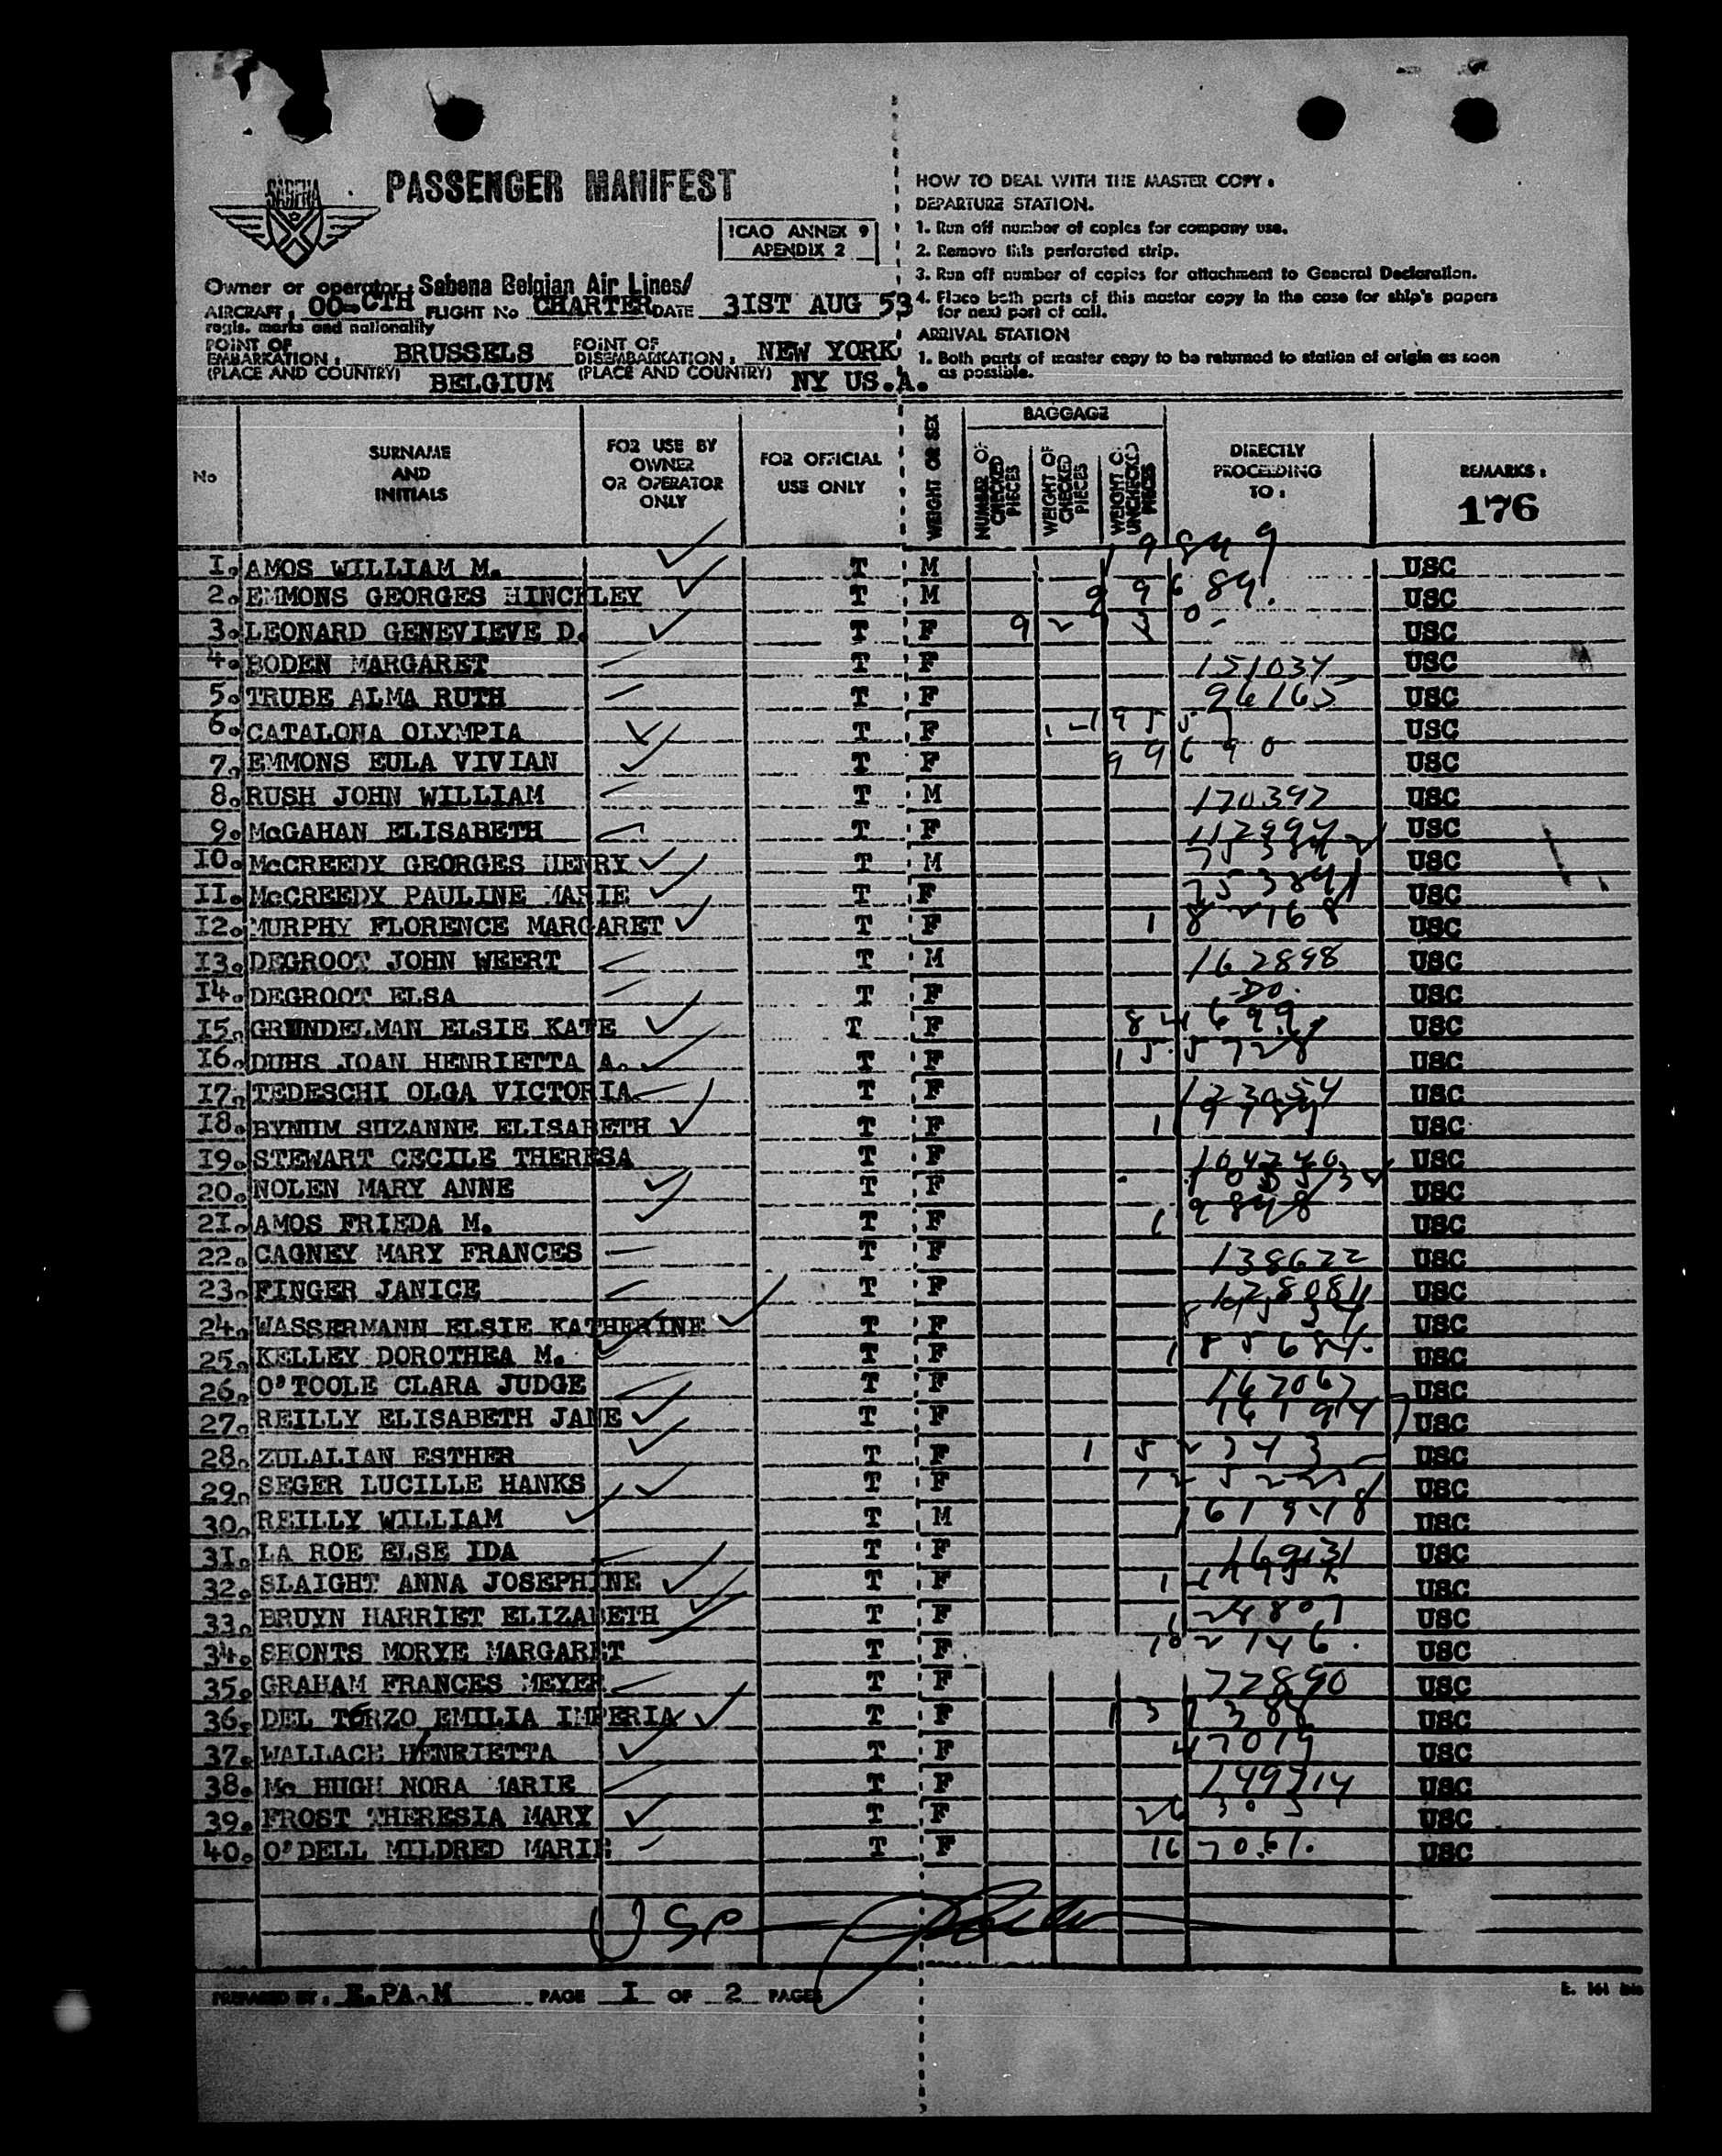 SABENA
PASSENGER MANIFEST
ICAO ANNEX 9
APENDIX 2
Owner or operator: Sabena Belgian Air Lines/
AIRCRAFT: OO-CTH FLIGHT No CHARTER DATE 31ST AUG 53
regis. marks and nationality
POINT OF EMBARKATION: BRUSSELS POINT OF DISEMBARKATION: NEW YORK
(PLACE AND COUNTRY) BELGIUM (PLACE AND COUNTRY) NY US.A.
HOW TO DEAL WITH THE MASTER COPY:
DEPARTURE STATION.
1. Run off number of copies for company use.
2. Remove this perforated strip.
3. Run off number of copies for attachment to General Declaration.
4. Place both parts of this master copy in the case for ship's papers
for next port of call.
ARRIVAL STATION
1. Both parts of master copy to be returned to station of origin as soon
as possible.
No SURNAME AND INITIALS FOR USE BY OWNER OR OPERATOR ONLY FOR OFFICIAL USE ONLY WEIGHT OR SEX BAGGAGE NUMBER OF CHECKED PIECES WEIGHT OF CHECKED PIECES WEIGHT OF UNCHECKED PIECES DIRECTLY PROCEEDING TO: REMARKS:
176
1. AMOS WILLIAM M. T M 19849 USC
2. EMMONS GEORGES HINCKLEY T M 99689. USC
3. LEONARD GENEVIEVE D. T F 9230- USC
4. BODEN MARGARET T F 151034 USC
5. TRUBE ALMA RUTH T F 96165 USC
6. CATALONA OLYMPIA T F USC
7. EMMONS EULA VIVIAN T F 99690 USC
8. RUSH JOHN WILLIAM T M 170397 USC
9. McGAHAN ELISABETH T F 112994 USC
10. McCREEDY GEORGES HENRY T M USC
11. McCREEDY PAULINE MARIE T F 75384 USC
12. MURPHY FLORENCE MARGARET T F 182168 USC
13. DEGROOT JOHN WEERT T M 162898 USC
14. DEGROOT ELSA T F -DO. USC
15. GRUNDELMAN ELSIE KATE T F 84699 USC
16. DUHS JOAN HENRIETTA A. T F 155728 USC
17. TEDESCHI OLGA VICTORIA T F 123054 USC
18. BYNUM SUZANNE ELISABETH T F USC
19. STEWART CECILE THERESA T F 104240 USC
20. NOLEN MARY ANNE T F USC
21. AMOS FRIEDA M. T F 19848 USC
22. CAGNEY MARY FRANCES T F 138622 USC
23. FINGER JANICE T F 128084 USC
24. WASSERMANN ELSIE KATHERINE T F USC
25. KELLEY DOROTHEA M. T F 185684. USC
26. O'TOOLE CLARA JUDGE T F 167067 USC
27. REILLY ELISABETH JANE T F 161947 USC
28. ZULALIAN ESTHER T F 152743 USC
29. SEGER LUCILLE HANKS T F USC
30. REILLY WILLIAM T M 161948 USC
31. LA ROE ELSE IDA T F 169131 USC
32. SLAIGHT ANNA JOSEPHINE T F USC
33. BRUYN HARRIET ELIZABETH T F USC
34. SHONTS MORYE MARGARET T F 102146. USC
35. GRAHAM FRANCES MEYER T F 72890 USC
36. DEL TORZO EMILIA IMPERIA T F USC
37. WALLACE HENRIETTA T F 47019 USC
38. Mc HUGH NORA MARIE T F USC
39. FROST THERESIA MARY T F 26305 USC
40. O'DELL MILDRED MARIE T F 167061. USC
PREPARED BY: E.PA.M PAGE 1 OF 2 PAGES
E. 161 bis